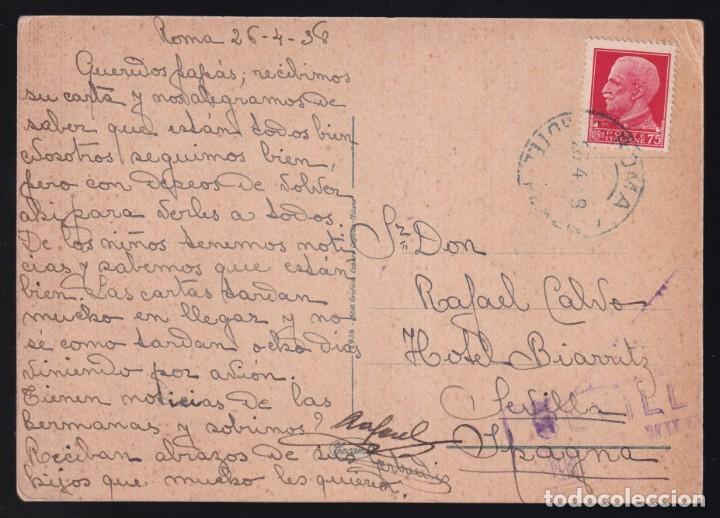 Roma 26-4-38
Queridos papás; recibimos
su carta y nos alegramos de
saber que están todos bien
Nosotros seguimos bien,
pero con deseos de volver
ahi para verles a todos.
De los niños tenemos noti
cias y sabemos que están
bien. Las cartas tardan
mucho en llegar y no
sé como tardan ocho dias
viniendo por avión.
Tienen noticias de las
hermanas y sobrinos?
Reciban abrazos de sus
hijos que mucho les quieren.
Rafael
Sr. Don
Rafael Calvo
Hotel Biarritz
Sevilla
Spagna
POSTE ITALIANE
75
ROMA
todocoleccion.net